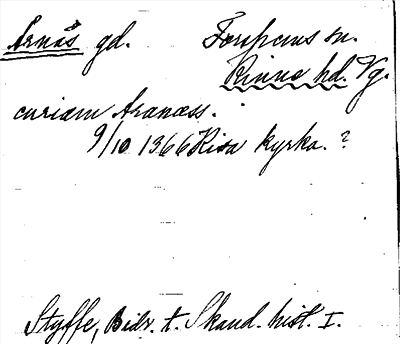 Årnäs gd. Forshems sn.
Kinne hd. Vg.
curiam Aranæss.
9/10 1366 Kisa kyrka. ?
Styffe, Bidr. t. Skand. hist. I.